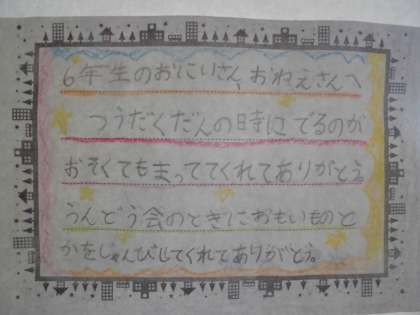 6年生のおにいさん、おねえさんへ
つうだくだんの時にでるのが
おそくてもまっててくれてありがとう
うんどう会のときにおもいものと
かをじゅんびしてくれてありがとう。